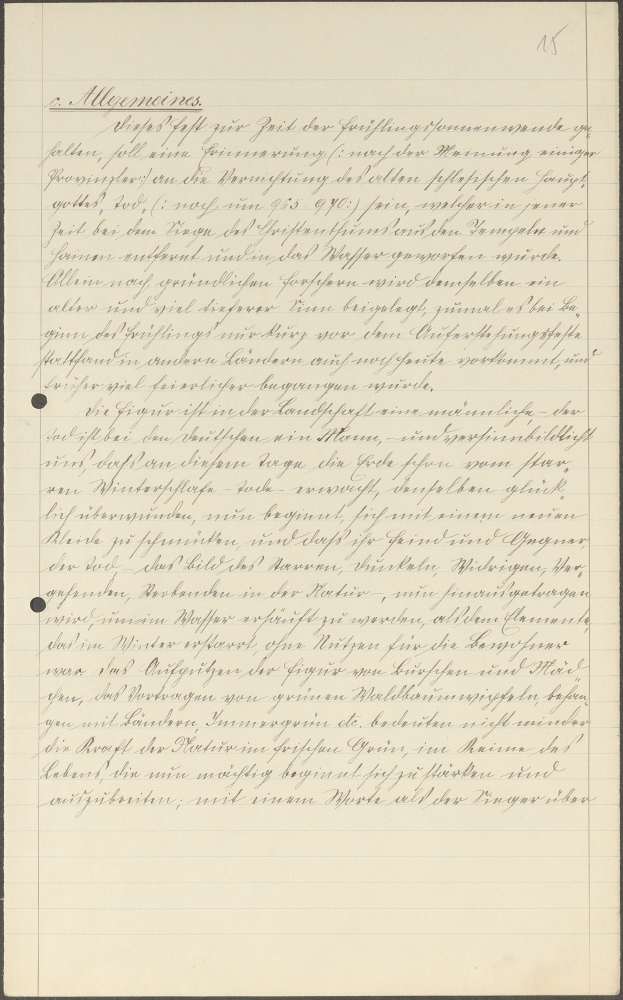 15
c. Allgemeines.
Dieses Fest zur Zeit der Frühlingssonnenwende ge-
halten, soll eine Erinnerung (: nach der Meinung einiger
Provinzler :) an die Vernichtung des alten schlesischen Haupt-
gottes, Tod, (: noch um 965 970 :) sein, welcher in jener
Zeit bei dem Siege des Christenthums aus den Tempeln und
Hainen entfernt und in das Wasser geworfen wurde.
Allein nach gründlichen Forschern wird demselben ein
alter und viel tieferer Sinn beigelegt, zumal es bei Be-
ginn des Frühlings nur kurz vor dem Auferstehungsfeste
stattfand in andern Ländern auch noch heute vorkommt, und
früher viel feierlicher begangen wurde.
Die Figur ist in der Landschaft eine männliche, – der
Tod ist bei den Deutschen ein Mann, – und versinnbildlicht
uns, daß an diesem Tage die Erde schon vom star-
ren Winterschlafe – Tode – erwacht, denselben glück-
lich überwunden, nun beginnt, sich mit einem neuen
Kleide zu schmücken, und daß ihr Feind und Gegner,
der Tod, – das Bild des Starren, Dunkeln, Widrigen, Ver-
gehenden, Sterbenden in der Natur –, nun hinausgetragen
wird, um im Wasser ersäuft zu werden, als dem Elemente,
das im Winter erstarrt, ohne Nutzen für die Bewohner
war. Das Aufputzen der Figur von Burschen und Mäd-
chen, das Vortragen von grünen Waldbaumwipfeln, behan-
gen mit Bändern, Immergrün etc. bedeuten nicht minder
die Kraft der Natur im frischen Grün, im Keime des
Lebens, die nun mächtig beginnt sich zu stärken und
auszubreiten; mit einem Worte als der Sieger über